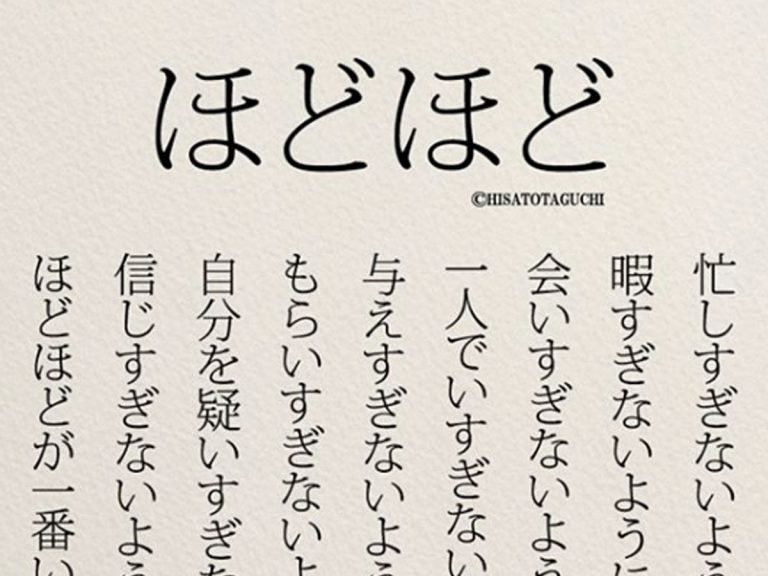 ほどほど
©HISATOTAGUCHI
忙しすぎないよう
暇すぎないように
会いすぎないよう
一人でいすぎない
与えすぎないよう
もらいすぎないよ
自分を疑いすぎな
信じすぎないよう
ほどほどが一番い